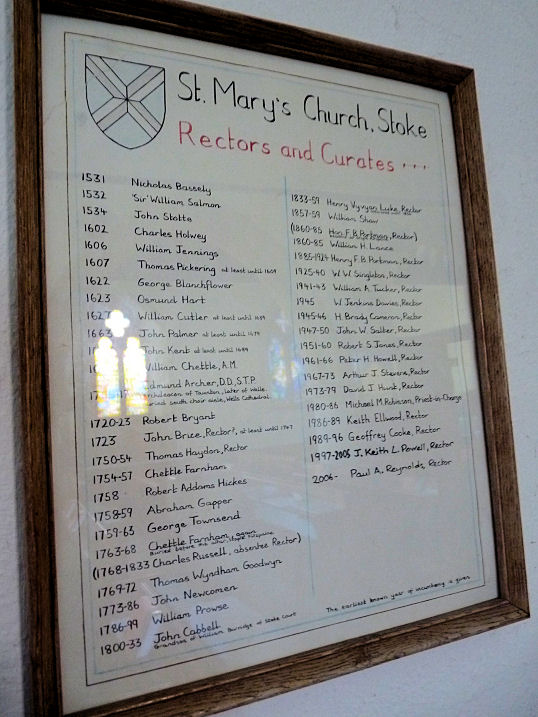 St. Mary's Church, Stoke
Rectors and Curates ...
1531 Nicholas Bassely
1532 'Sir' William Salmon
1534 John Stotte
1602 Charles Holwey
1606 William Jennings
1607 Thomas Pickering at least until 1609
1622 George Blanchflower
1623 Osmund Hart
1627 William Cutler at least until
1663 John Palmer at least until
John Kent at least until
William Chettle, A.M.
Edmund Archer, D.D., S.T.P.
Archdeacon of Taunton, later of Wells.
Buried south choir aisle, Wells Cathedral
1720-23 Robert Bryant
1723 John Brice, Rector?, at least until 1747
1750-54 Thomas Haydon, Rector
1754-57 Chettle Farnham
1758 Robert Addams Hickes
1758-59 Abraham Gapper
1759-63 George Townsend
1763-68 Chettle Farnham, again
Buried before the altar, Stoke
(1768-1833 Charles Russell, absentee Rector)
1769-72 Thomas Wyndham Goodwyn
1773-86 John Newcomen
1786-99 William Prowse
1800-33 John Cabbell
Grandson of William Burridge of Stoke Court
1833-59 Henry Vyvyan Luke, Rector
1857-59 William Shaw
(1860-85 Hon F.B. Portman, Rector)
1860-85 William H. Lance
1885-1924 Henry F.B. Portman, Rector
1925-40 W.W. Singleton, Rector
1941-43 William A. Tucker, Rector
1945 W. Jenkins Davies, Rector
1945-46 H. Brady Cameron, Rector
1947-50 John W. Salter, Rector
1951-60 Robert S. Jones, Rector
1961-66 Peter H. Howell, Rector
1967-73 Arthur J. Stevens, Rector
1973-79 David J. Hunt, Rector
1980-86 Michael M. Robinson, Priest-in-Charge
1986-89 Keith Ellwood, Rector
1989-96 Geoffrey Cooke, Rector
1997-2005 J. Keith L. Powell, Rector
2006- Paul A. Reynolds, Rector
The earliest known year of incumbency is given